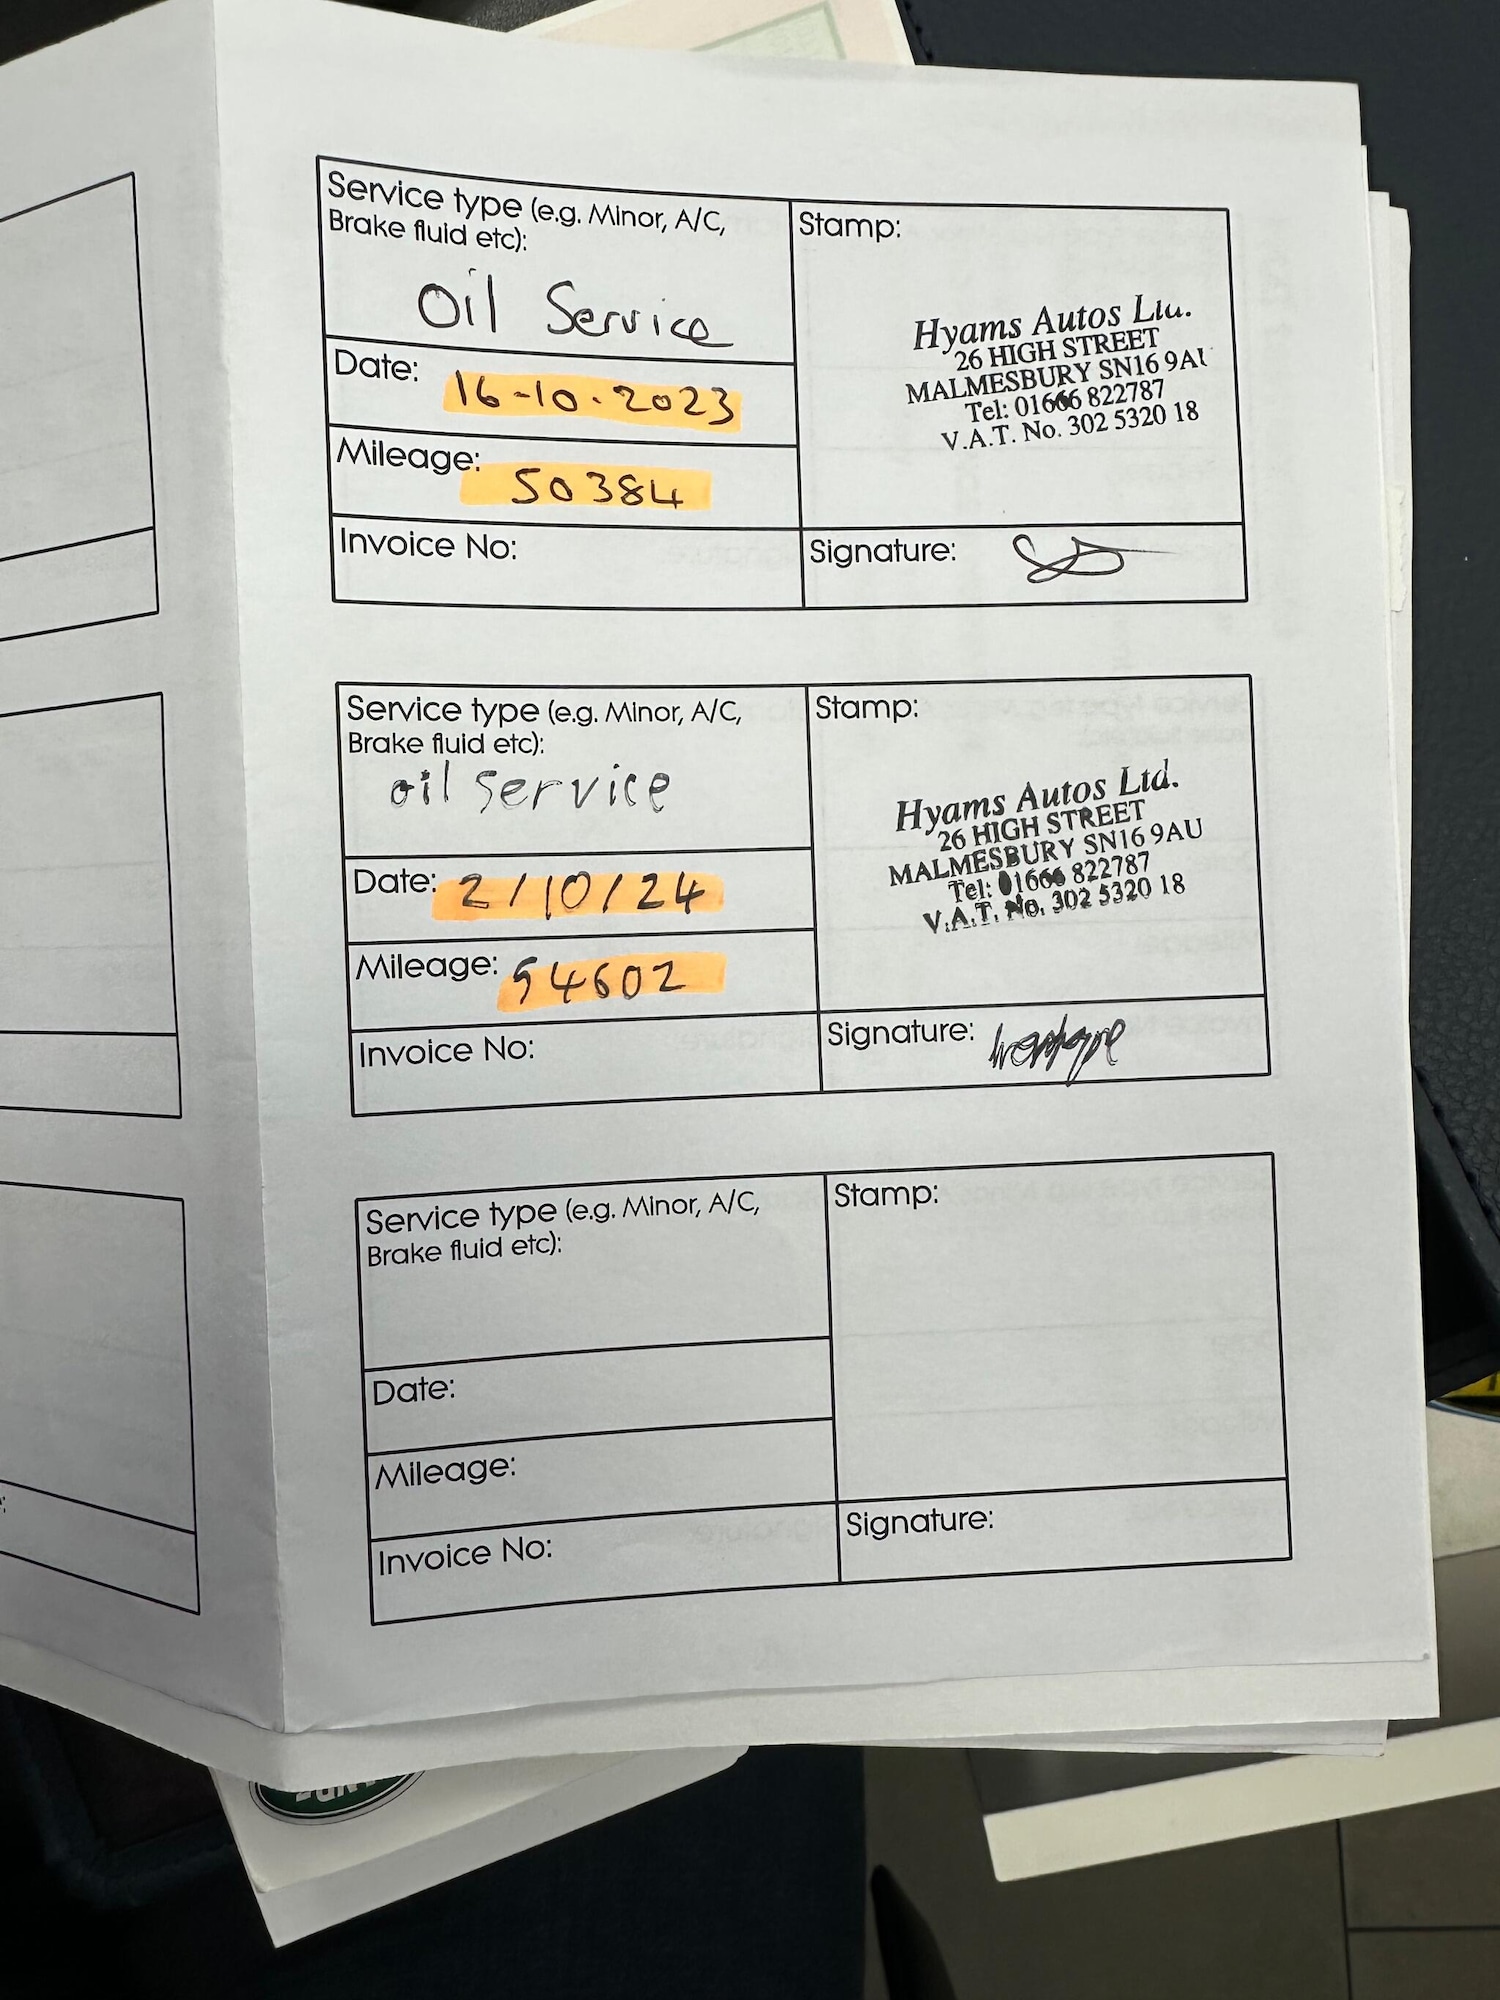 Service type (e.g. Minor, A/C,
Brake fluid etc):
Oil Service
Date: 16-10.2023
Mileage: 50384
Invoice No:
Stamp:
Hyams Autos Ltd.
26 HIGH STREET
MALMESBURY SN16 9AU
Tel: 01666 822787
V.A.T. No. 302 5320 18
Signature:
Service type (e.g. Minor, A/C,
Brake fluid etc):
oil service
Date: 2/10/24
Mileage: 54602
Invoice No:
Stamp:
Hyams Autos Ltd.
26 HIGH STREET
MALMESBURY SN16 9AU
Tel: 01666 822787
V.A.T. No. 302 5320 18
Signature:
Service type (e.g. Minor, A/C,
Brake fluid etc):
Date:
Mileage:
Invoice No:
Stamp:
Signature: